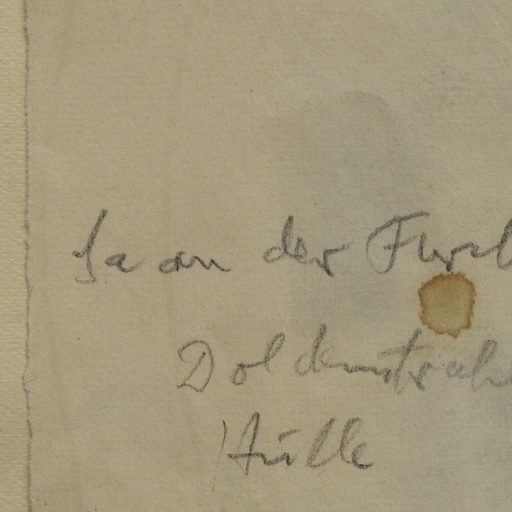 Ja an der
Doldenstrahl
Hülle